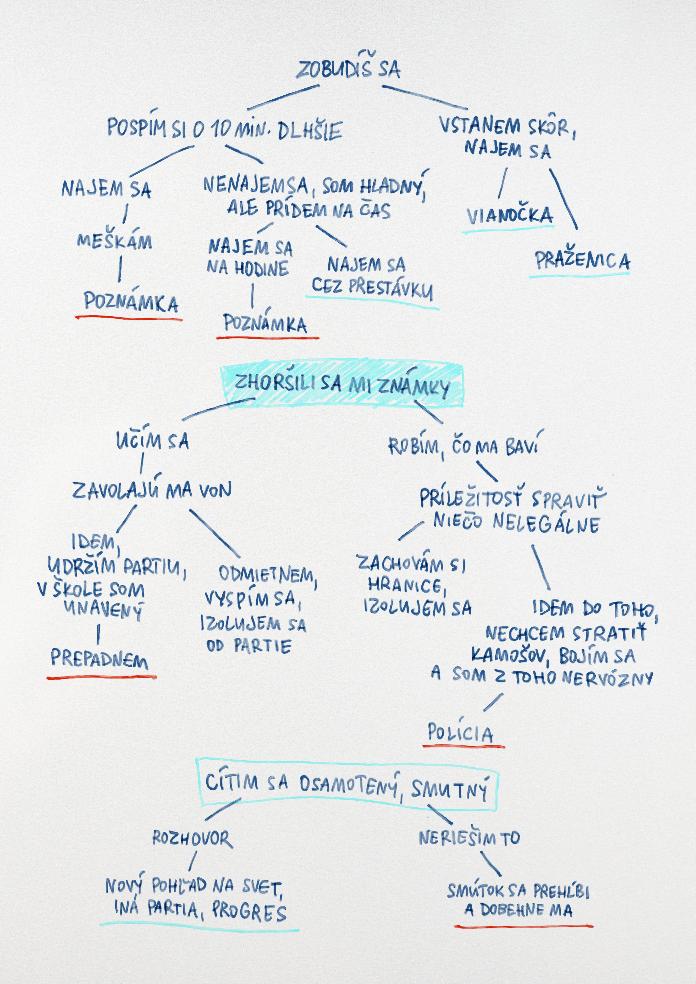 ZOBUDÍŠ SA
POSPÍM SI O 10 MIN. DLHŠIE
VSTANEM SKÔR,
NAJEM SA
NAJEM SA
MEŠKÁM
POZNÁMKA
NENAJEM SA, SOM HLADNÝ,
ALE PRÍDEM NA ČAS
NAJEM SA
NA HODINE
POZNÁMKA
NAJEM SA
CEZ PŘESTÁVKU
VIANOČKA
PRAŽENICA
ZHORŠILI SA MI ZNÁMKY
UČÍM SA
ZAVOLAJÚ MA VON
IDEM,
UDRŽÍM PARTIU,
V ŠKOLE SOM
UNAVENÝ
PREPADNEM
ODMIETNEM,
VYSPÍM SA,
IZOLUJEM SA
OD PARTIE
ROBÍM, ČO MA BAVÍ
PRÍLEŽITOSŤ SPRAVIŤ
NIEČO NELEGÁLNE
ZACHOVÁM SI
HRANICE,
IZOLUJEM SA
IDEM DO TOHO,
NECHCEM STRATIŤ
KAMOŠOV, BOJÍM SA
A SOM Z TOHO NERVÓZNY
POLÍCIA
CÍTIM SA OSAMOTENÝ, SMUTNÝ
ROZHOVOR
NOVÝ POHĽAD NA SVET,
INÁ PARTIA, PROGRES
NERIEŠIM TO
SMÚTOK SA PREHĹBI
A DOBEHNE MA